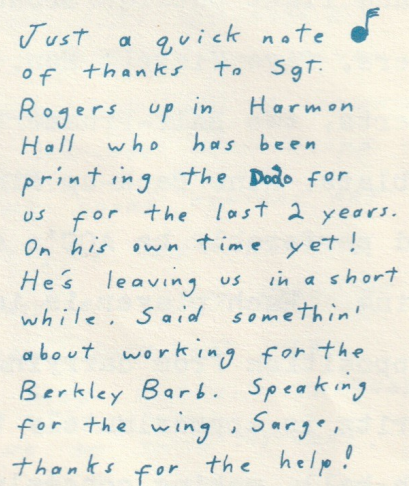 Just a quick note
of thanks to Sgt.
Rogers up in Harmon
Hall who has been
printing the Dodo for
us for the last 2 years.
On his own time yet!
He's leaving us in a short
while. Said somethin'
about working for the
Berkley Barb. Speaking
for the wing, Sarge,
thanks for the help!